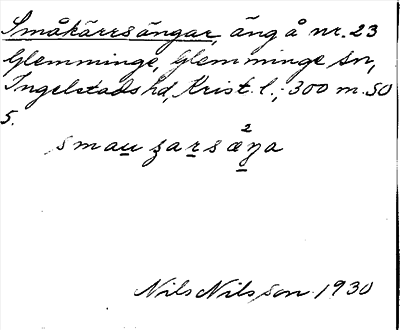 Småkärrsängar, äng å nr. 23
Glemminge, Glemminge sn,
Ingelstads hd, Krist. l.; 300 m. SO
5.
Nils Nilsson 1930